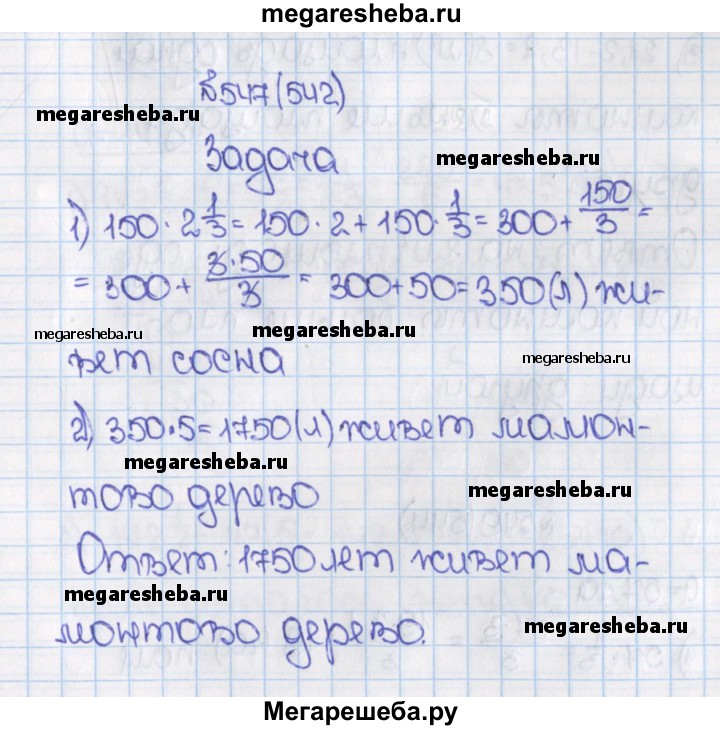 megaresheba.ru
№547(542)
megaresheba.ru
Задача
megaresheba.ru
1) 150 · 2 1/3 = 150 · 2 + 150 · 1/3 = 300 + 150/3 =
= 300 + 3·50/3 = 300+50=350(л) жи-
megaresheba.ru
megaresheba.ru
вет сосна
megaresheba.ru
2) 350·5=1750(л) живет мамон-
megaresheba.ru
тово дерево
megaresheba.ru
Ответ: 1750 лет живет ма-
megaresheba.ru
монтово дерево.
megaresheba.ru
Мегарешеба.ру